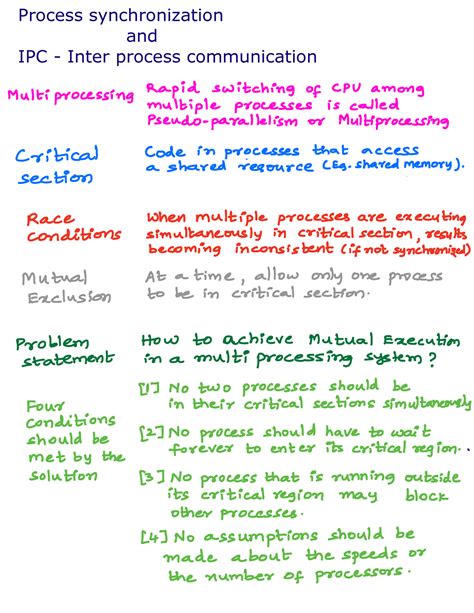 Process synchronization
and
IPC - Inter process communication
Multiprocessing
Rapid switching of CPU among
multiple processes is called
Pseudo-parallelism or Multiprocessing
Critical
section
Code in processes that access
a shared resource (Eg. shared memory).
Race
conditions
When multiple processes are executing
simultaneously in critical section, results
becoming inconsistent (if not synchronized)
Mutual
Exclusion
At a time, allow only one process
to be in critical section.
Problem
statement
How to achieve Mutual Execution
in a multi processing system?
Four
conditions
should be
met by the
solution
[1] No two processes should be
in their critical sections simultaneously
[2] No process should have to wait
forever to enter its critical region..
[3] No process that is running outside
its critical region may block
other processes.
[4] No assumptions should be
made about the speeds or
the number of processors.